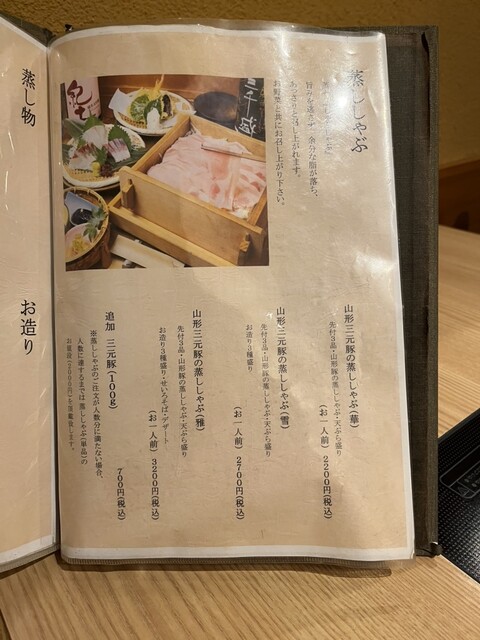 蒸ししゃぶ
旨みを逃さず、余分な脂が落ち、
あっさりと召し上がれます。
お野菜と共にお召し上がり下さい。
山形三元豚の蒸ししゃぶ(華)
先付3品・山形豚の蒸ししゃぶ・天ぷら盛り
(お一人前) 2200円(税込)
山形三元豚の蒸ししゃぶ(雪)
先付3品・山形豚の蒸ししゃぶ・天ぷら盛り
お造り3種盛り
(お一人前) 2700円(税込)
山形三元豚の蒸ししゃぶ(雅)
先付3品・山形豚の蒸ししゃぶ・天ぷら盛り
お造り3種盛り・せいろそば・デザート
(お一人前) 3200円(税込)
追加 三元豚(100g)
700円(税込)
※蒸ししゃぶのご注文が人数分に満たない場合、
人数に達するまでは蒸ししゃぶ(単品)の
お値段(2000円)を頂戴致します。
蒸し物
お造り